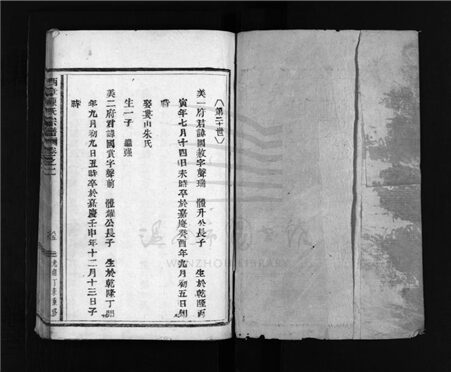 （第二十世）
美一府君諱國敦字聲瑞　體升公長子　生於乾隆丙
寅年七月十四日未時卒於嘉慶癸酉年九月初五日卯
時
娶黃山朱氏
生一子　繼
美二府君諱國賁字聲前　體耀公長子　生於乾隆丁卯
年九月初九日丑時卒於嘉慶壬申年十二月十三日子
時
氏宗譜
溫州圖
WENZHOU LIBRARY